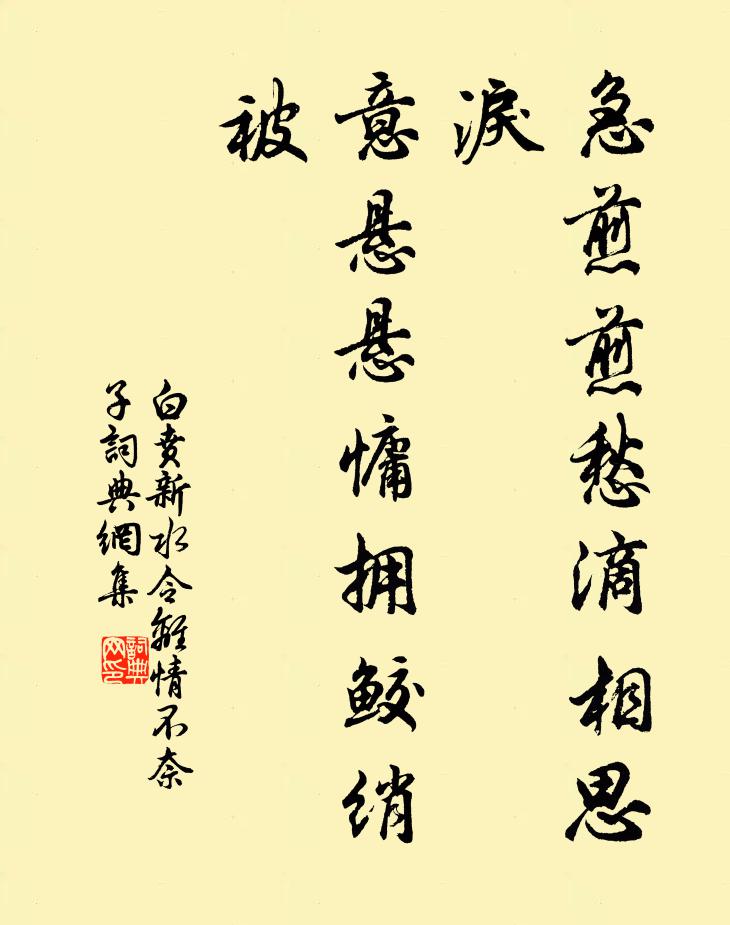 急煎煎愁滴相思
淚
意悬悬慵拥鲛绡
被
白賁新水令離情不奈
子詞典網集
詞典
网印